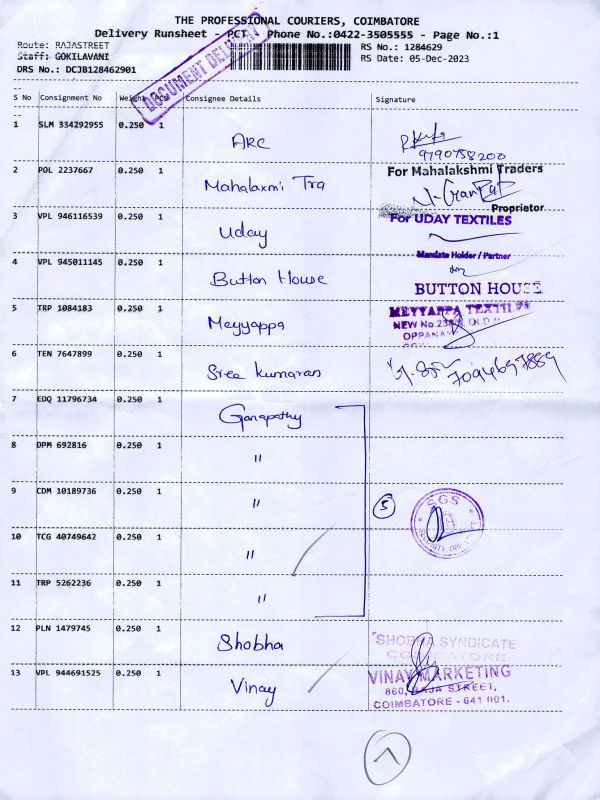 THE PROFESSIONAL COURIERS, COIMBATORE
Delivery Runsheet - PCT Phone No.:0422-3505555 - Page No.:1
Route: RAJASTREET
RS No.: 1284629
Staff: GOKILAVANI
RS Date: 05-Dec-2023
DRS No.: DCJB128462901
DOCUMENT DELIVERY
S No Consignment No Weight PCS Consignee Details Signature
1 SLM 334292955 0.250 1 ARC
9790758200
2 POL 2237667 0.250 1 Mahalaxmi Tra
For Mahalakshmi Traders
Proprietor
3 VPL 946116539 0.250 1 Uday
For UDAY TEXTILES
Mandate Holder / Partner
4 VPL 945011145 0.250 1 Button House
BUTTON HOUSE
5 TRP 1084183 0.250 1 Meyyappa
MEYYAPPA TEXTILES
NEW No.
OLD
6 TEN 7647899 0.250 1 Sree Kumaran
7094657889
7 EDQ 11796734 0.250 1 Ganapathy
8 DPM 692816 0.250 1 "
9 CDM 10189736 0.250 1 "
5
CGS
10 TCG 40749642 0.250 1 "
11 TRP 5262236 0.250 1 "
12 PLN 1479745 0.250 1 Shobha
SHOBHA SYNDICATE
COIMBATORE
13 VPL 944691525 0.250 1 Vinay
VINAY MARKETING
860, RAJA STREET,
COIMBATORE - 641 001.